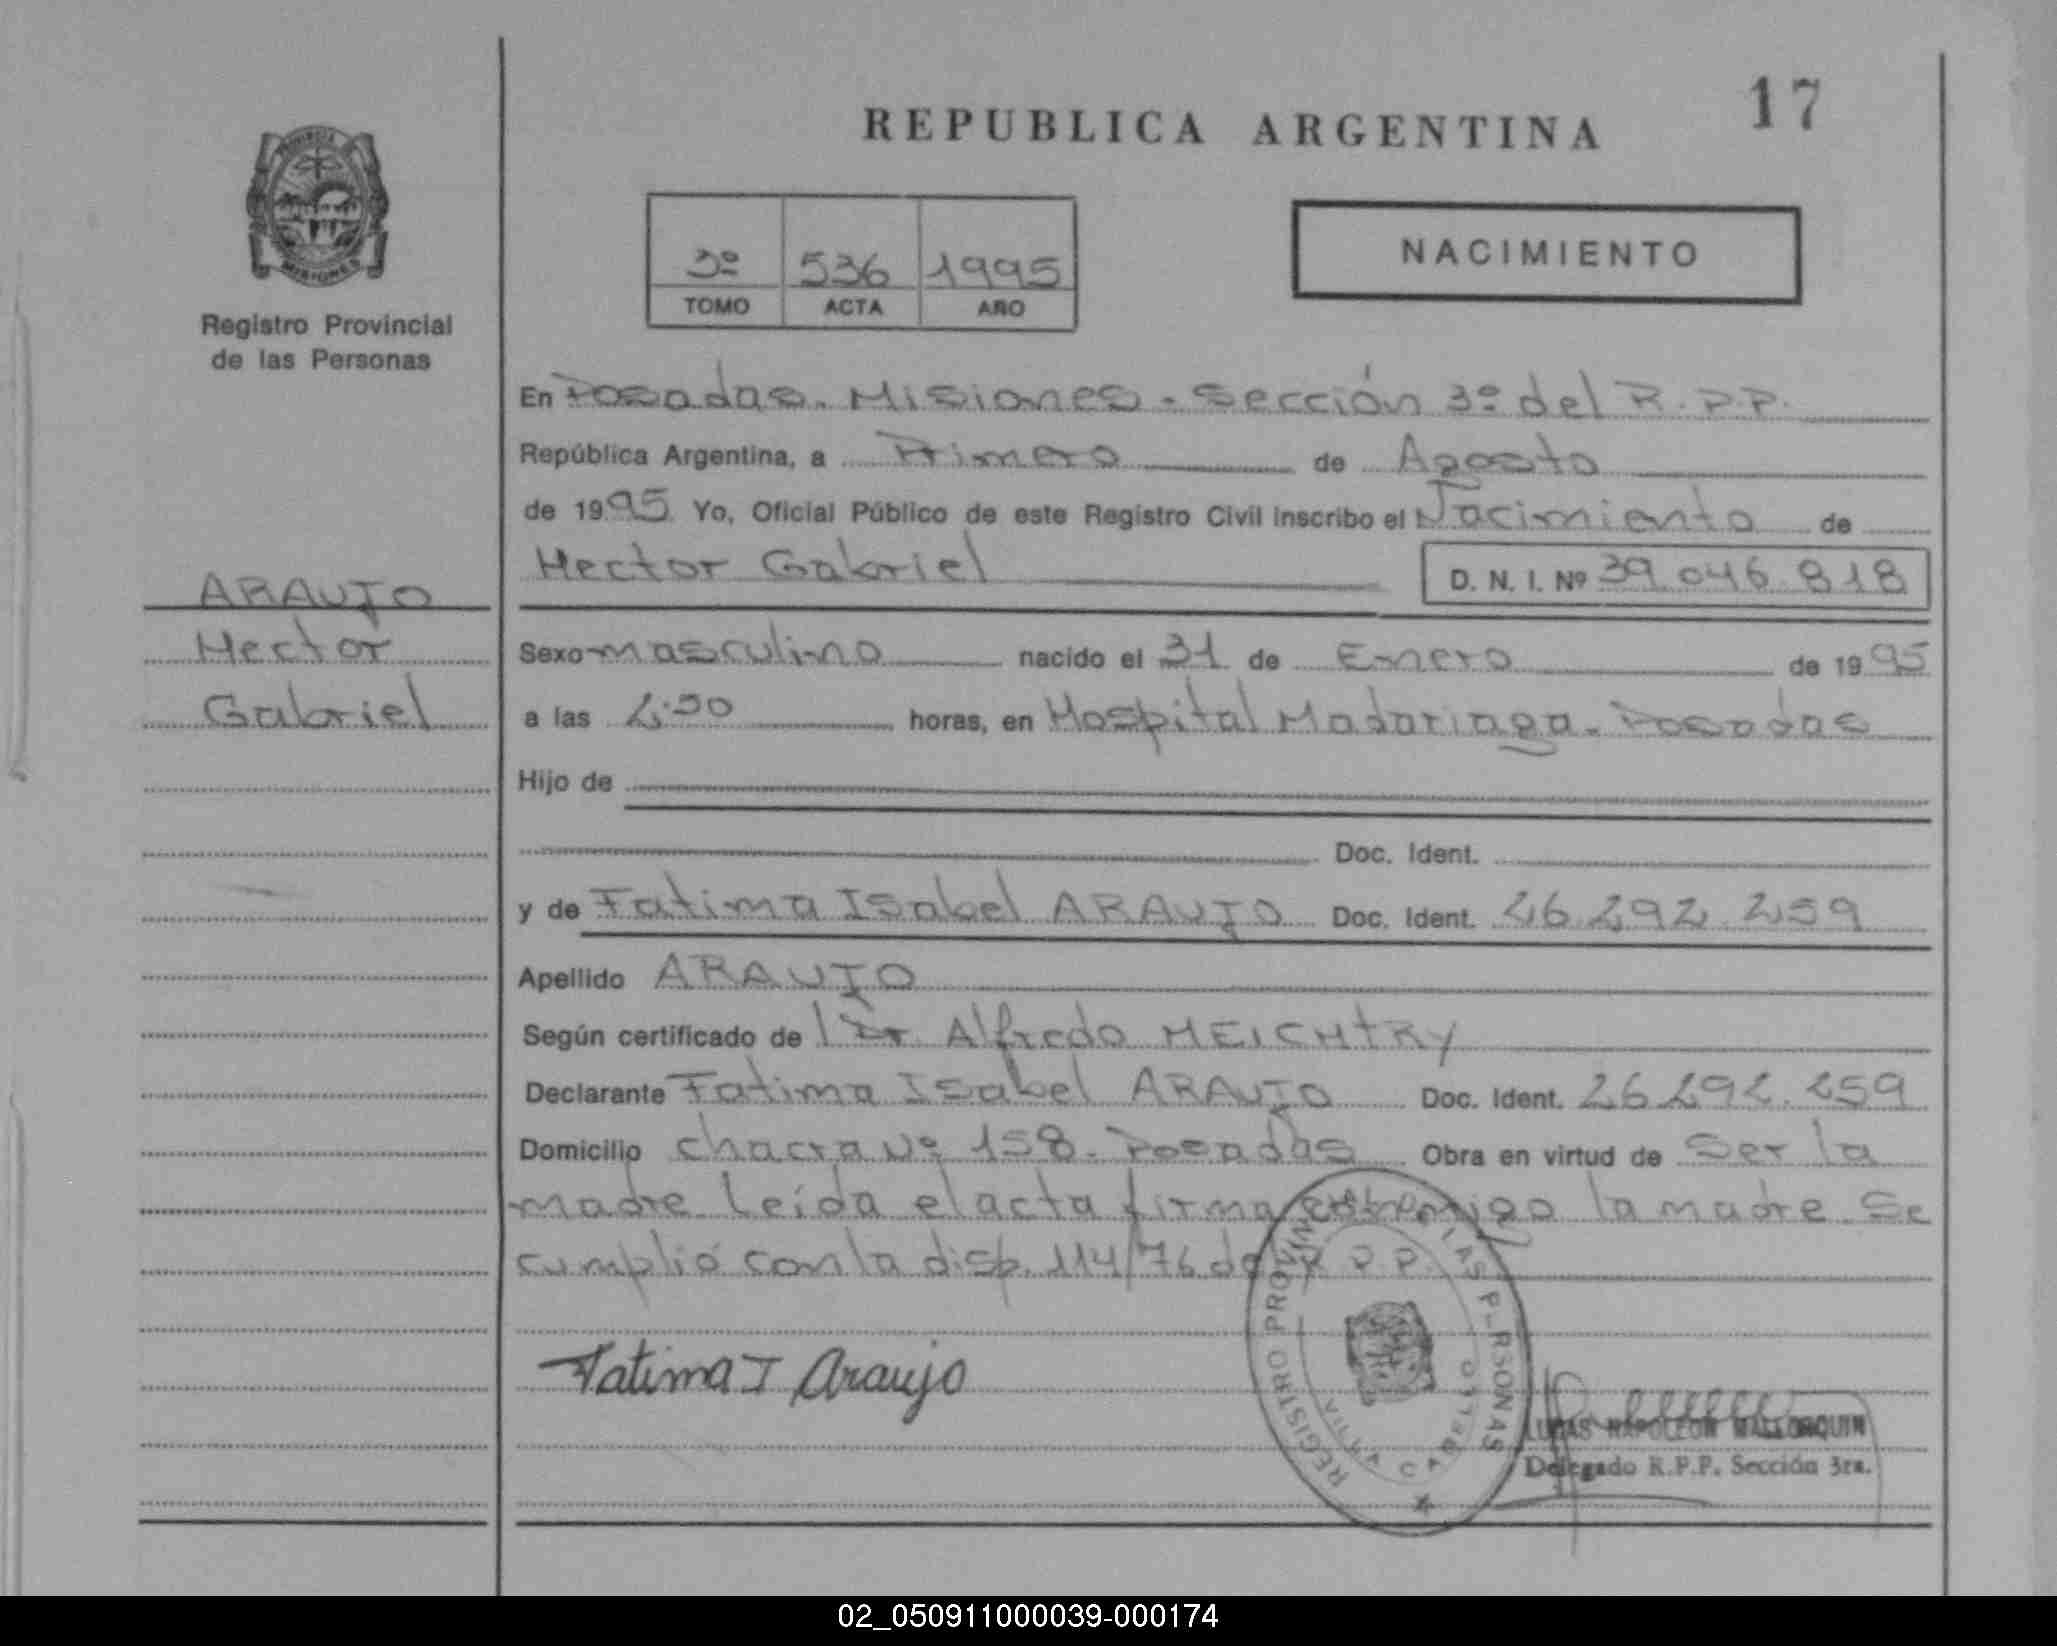 17
REPUBLICA ARGENTINA
NACIMIENTO
3º 536 1995
TOMO ACTA AÑO
Registro Provincial
de las Personas
En Posadas. Misiones - Sección 3º del R.P.P.
República Argentina, a Primero de Agosto
de 1995 Yo, Oficial Público de este Registro Civil inscribo el Nacimiento de
Hector Gabriel D. N. I. Nº 39.046.818
ARAUJO
Hector
Gabriel
Sexo masculino nacido el 31 de Enero de 1995
a las horas, en Hospital Madariaga - Posadas
Hijo de
Doc. Ident.
y de Fatima Isabel ARAUJO Doc. Ident. 26.292.259
Apellido ARAUJO
Según certificado de Dr. Alfredo MEICHTRY
Declarante Fatima Isabel ARAUJO Doc. Ident. 26.292.259
Domicilio chacra Nº 158 - Posadas Obra en virtud de Ser la
madre Leída el acta firma conmigo la madre Se
cumplió con la disp. 114/76 del R.P.P.
Fatima I Araujo
REGISTRO PROVINCIAL
LAS PERSONAS
VILLA CABELLO
LUCAS NAPOLEON MALLORQUIN
Delegado R.P.P. Sección 3ra.
02_050911000039-000174